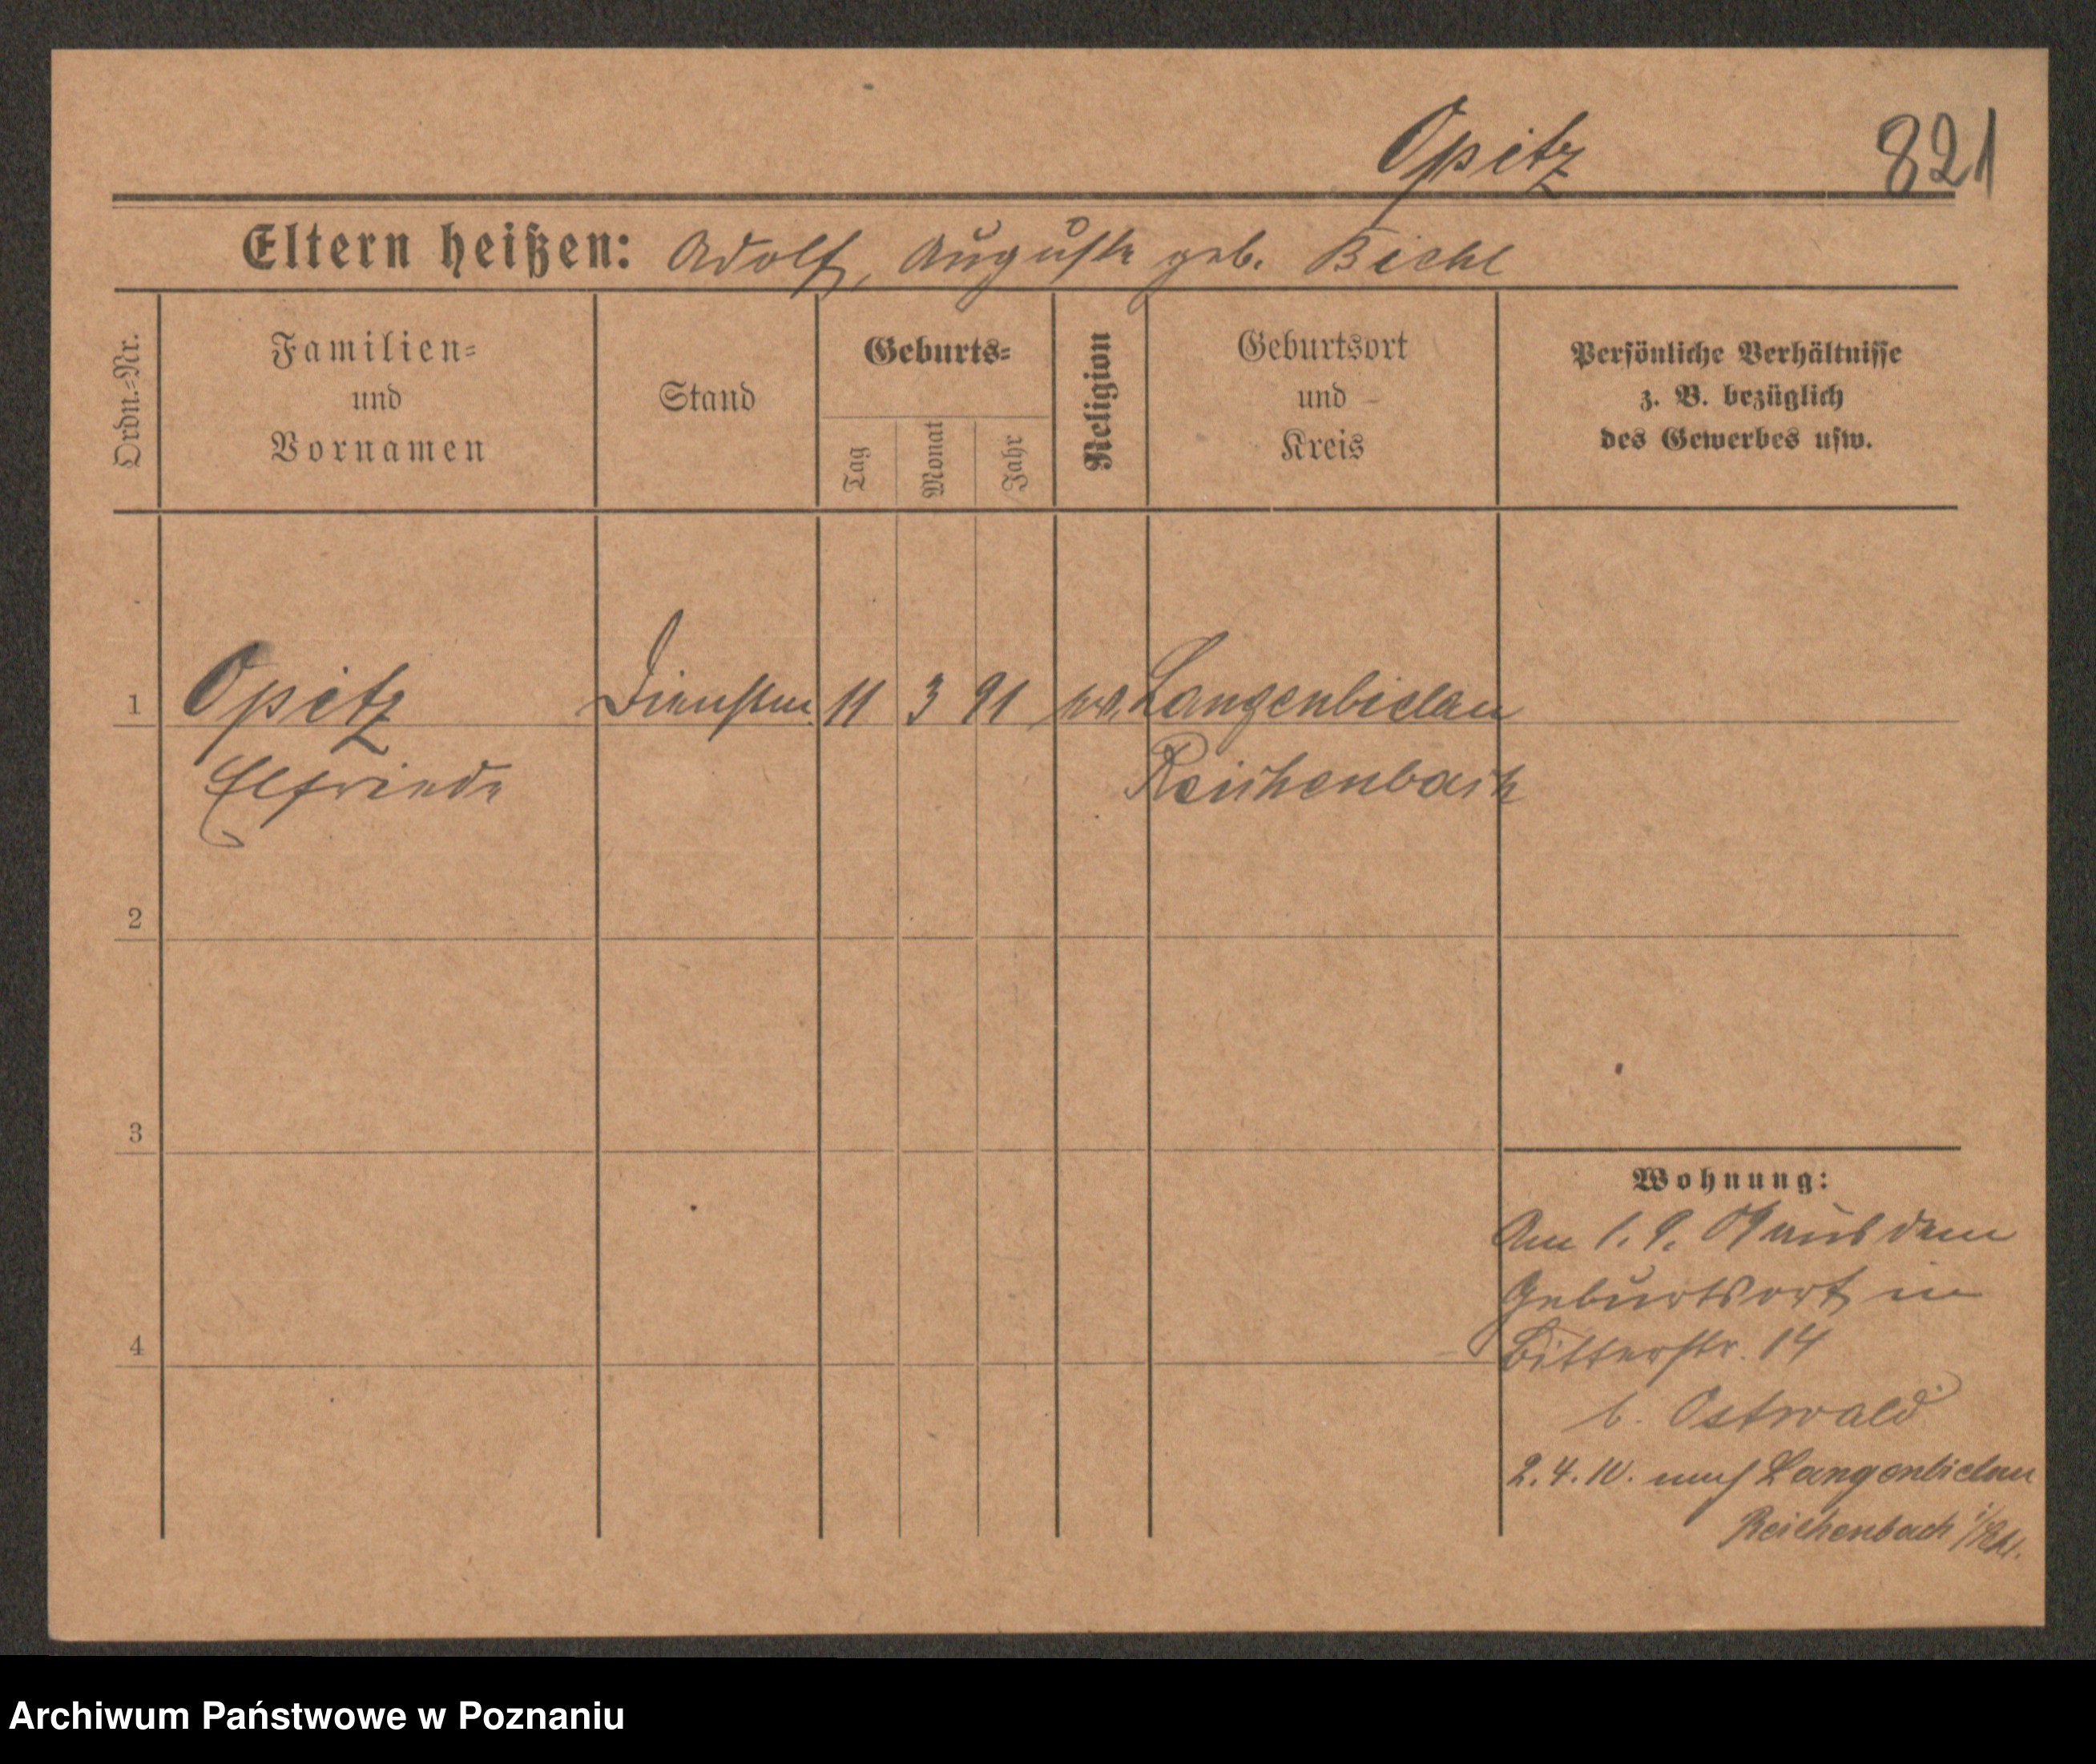 Opitz 821
Eltern heißen: Adolf, Auguste geb. Biehl
Ordn.-Nr.
Familien-
und
Vornamen
Stand
Geburts-
Tag
Monat
Jahr
Religion
Geburtsort
und
Kreis
Persönliche Verhältnisse
z. B. bezüglich
des Gewerbes usw.
1 Opitz Dienstm. 11 3 91 Langenbielau
Elfriede Reichenbach
2
3
4
Wohnung:
Am 1. 9. 09 aus dem
Geburtsort in
Bitterstr. 14
b. Ostwald
2.4.10. nach Langenbielau
Reichenbach
Archiwum Państwowe w Poznaniu